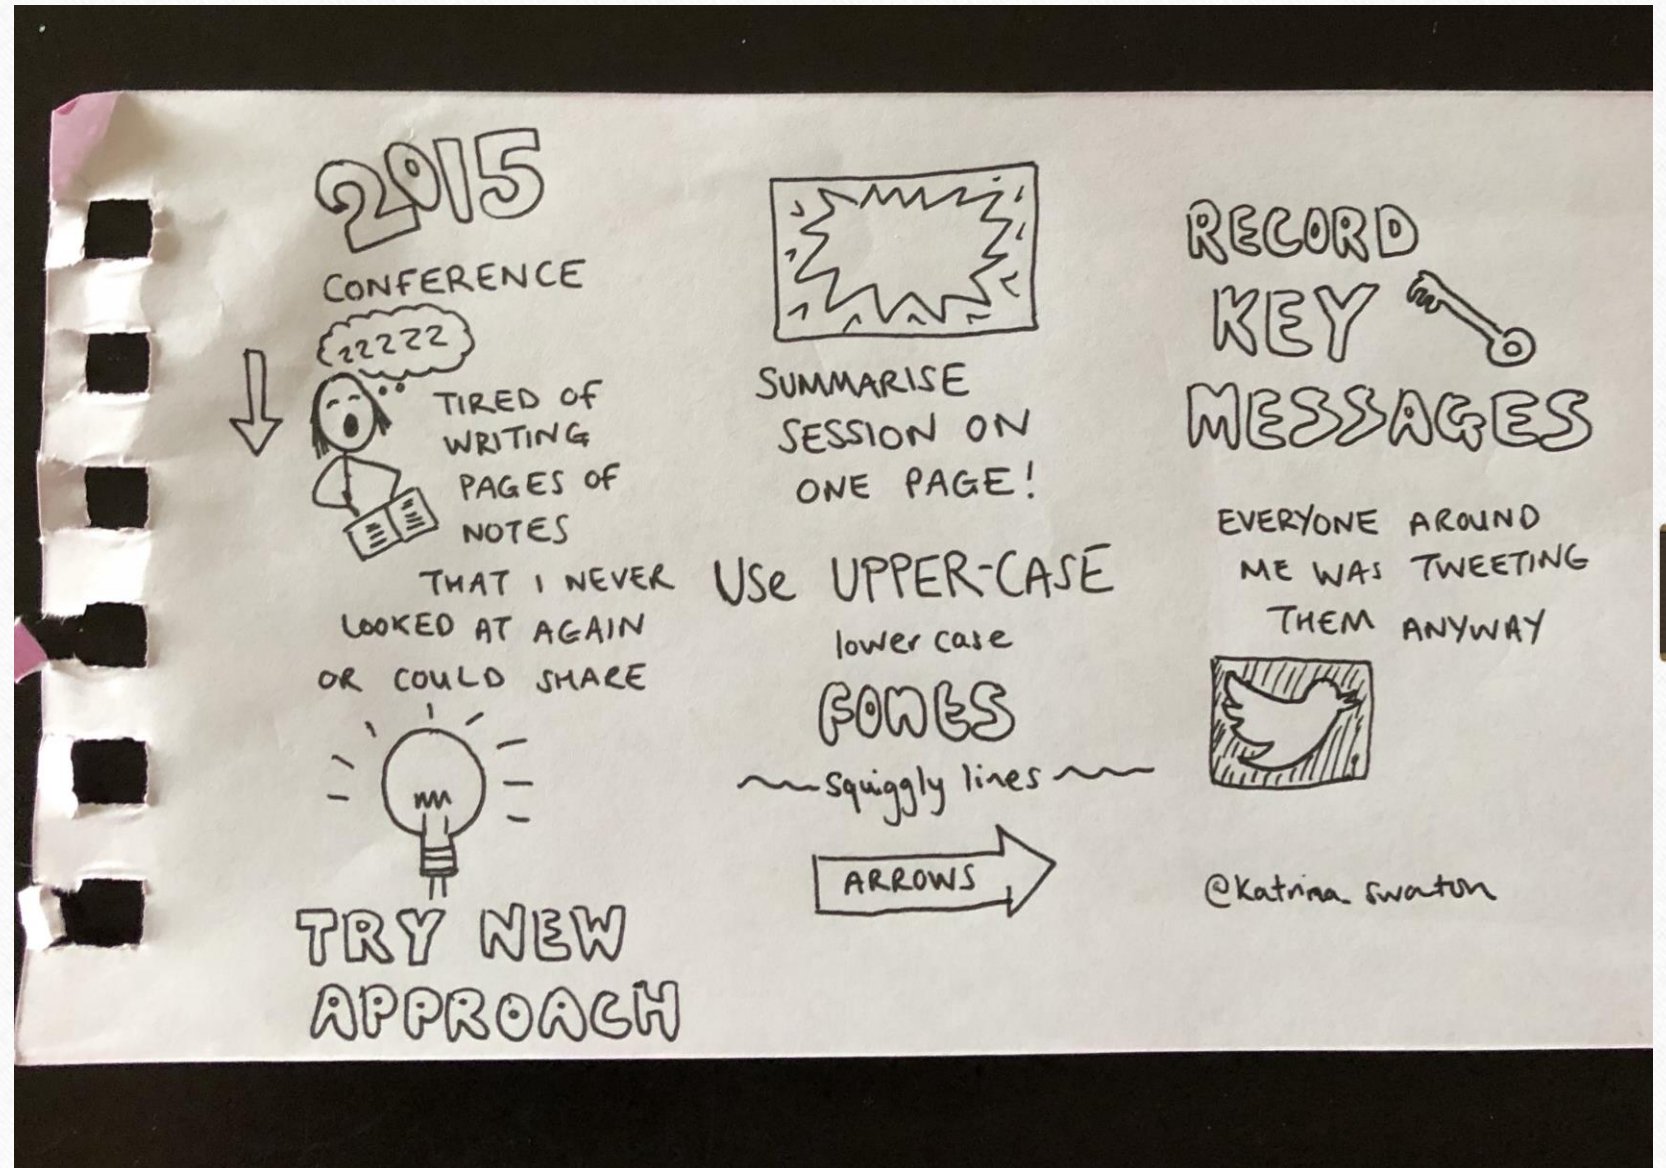 2015
CONFERENCE
ZZZZZ
TIRED OF
WRITING
PAGES OF
NOTES
THAT I NEVER
LOOKED AT AGAIN
OR COULD SHARE
TRY NEW
APPROACH
SUMMARISE
SESSION ON
ONE PAGE!
USe UPPER-CASE
lower case
FONES
squiggly lines
ARROWS
RECORD
KEY
MESSAGES
EVERYONE AROUND
ME WAS TWEETING
THEM ANYWAY
@Katrina_swanton